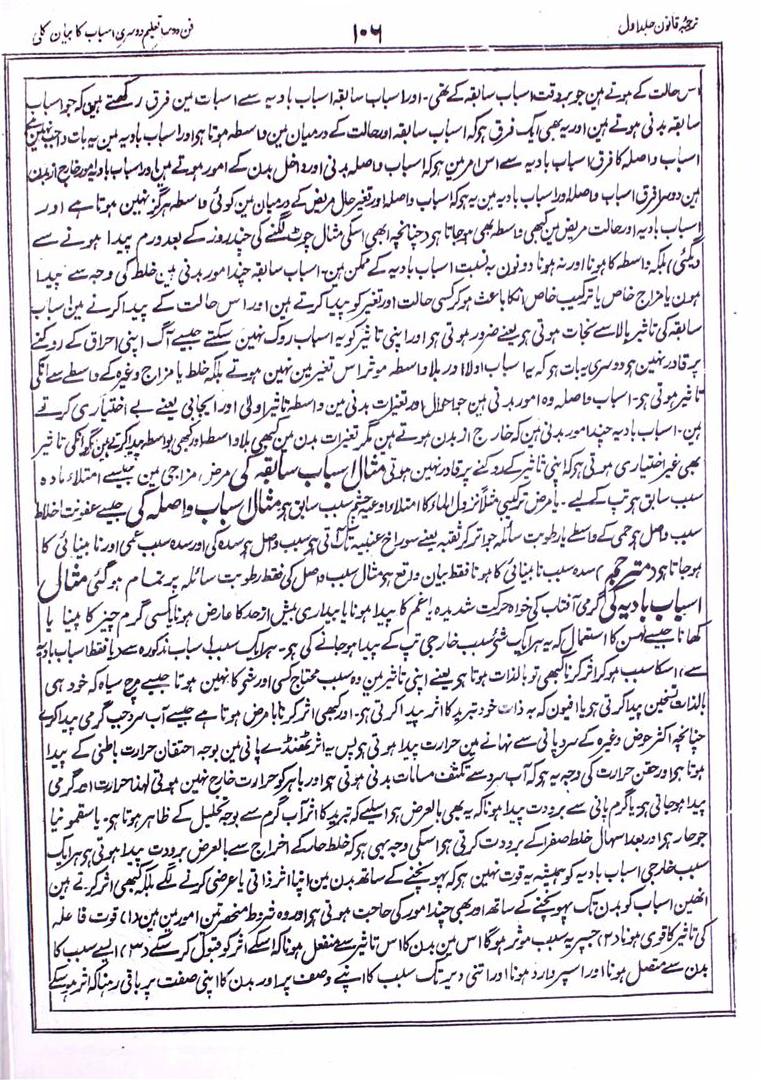 ترجمہ قانون جلد اول ۱۰۶ فن دوسرا تعلیم دوسری اسباب کا بیان کلی
اس حالت کے ہوتے ہین جو بروقت اسباب سابقہ کے تھی۔ اور اسباب سابقہ اسباب بادیہ سے اسبات مین فرق رکھتے ہین کہ جو اسباب
سابقہ بدنی ہوتے ہین اور یہ بھی ایک فرق ہو کہ اسباب سابقہ اور حالت کے درمیان مین واسطہ ہوتا ہو اور اسباب بادیہ مین یہ بات واجب نہین ہے
اسباب واصلہ کا فرق اسباب بادیہ سے اس امر مین ہو کہ اسباب واصلہ بدنی اور داخل بدن کے امور ہوتے ہین اور اسباب بادیہ امور خارج از بدن
ہین دوسرا فرق اسباب واصلہ اور اسباب بادیہ مین یہ ہو کہ اسباب واصلہ اور تغیر حال مریض کے درمیان مین کوئی واسطہ ہرگز نہین ہوتا ہے اور
اسباب بادیہ اور حالت مریض مین کبھی واسطہ بھی ہو جاتا ہو چنانچہ ابھی اسکی مثال چوٹ لگنے کی چند روز کے بعد ورم پیدا ہونے سے
دیگئی) بلکہ واسطہ کا ہونا اور نہ ہونا دونون بہ نسبت اسباب بادیہ کے ممکن ہین۔ اسباب سابقہ چند امور بدنی ہین خلط کی وجہ سے پیدا
ہون یا مزاج خاص یا ترکیب خاص انکا باعث ہو کر کسی حالت اور تغیر کو پیدا کرتے ہین اور اس حالت کے پیدا کرنے مین اسباب
سابقہ کی تاثیر بالا سے نجات ہوتی ہو یعنے ضرور ہوتی ہو اور اپنی تاثیر کو یہ اسباب روک نہین سکتے جیسے آگ اپنی احراق کے روکنے
پر قادر نہین ہو دوسری یہ بات ہو کہ یہ اسباب اولا اور بلا واسطہ موثر اس تغیر مین نہین ہوتے بلکہ خلط یا مزاج وغیرہ کے واسطے سے انکی
تاثیر ہوتی ہو۔ اسباب واصلہ وہ امور بدنی ہین جو احوال اور تغیرات بدنی مین واسطہ تاثیر اولی اور ایجابی یعنے بے اختیاری کرتے
ہین۔ اسباب بادیہ چند امور بدنی ہین کہ خارج از بدن ہوتے ہین مگر تغیرات بدن مین کبھی بلا واسطہ اور کبھی بواسطہ پیدا کرتے ہین مگر انکی تاثیر
بھی غیر اختیاری ہوتی ہو کہ اپنی تاثیر کے روکنے پر قادر نہین ہوتی مثال اسباب سابقہ کی مرض مزاجی مین جیسے امتلاء مادہ
سبب سابق ہو تپ کے لیے۔ یا مرض ترکیبی مثلاً نزول الماء کا امتلاء اوعیہ چشم سبب سابق ہو مثال اسباب واصلہ کی جیسے عفونت اخلاط
سبب واصل ہو حمی کے واسطے یا رطوبت سائلہ جو اتر کر ثقبہ یعنے سوراخ عنبیہ تک آتی ہو سبب واصل ہو سدہ کی اور سدہ سبب عمی اور نابینائی کا
ہو جاتا ہو (مترجم) سدہ سبب نابینائی کا ہونا فقط بیان واقع ہو مثال سبب واصل کی فقط رطوبت سائلہ پر تمام ہو گئی مثال
اسباب بادیہ کی گرمی آفتاب کی خواہ حرکت شدیدہ یا غم کا پیدا ہونا یا بیداری بیش از حد کا عارض ہونا یا کسی گرم چیز کا پینا یا
کھانا جیسے لہسن کا استعمال کہ یہ ہر ایک شئی سبب خارجی تپ کے پیدا ہو جانے کی ہو۔ ہر ایک سبب اسباب مذکورہ سے دیا فقط اسباب بادیہ
سے) اسکا سبب ہو کر اثر کرنا کبھی تو بالذات ہوتا ہو یعنے اپنی تاثیر مین وہ سبب محتاج کسی اور شی کا نہین ہوتا جیسے مرچ سیاہ کہ خود ہی
بالذات تسخین پیدا کرتی ہو یا افیون کہ بہ ذات خود تبرید کا اثر پیدا کرتی ہو۔ اور کبھی اثر کرنا بالعرض ہوتا ہے جیسے آب سرد جب گرمی پیدا کرے
چنانچہ اکثر حوض وغیرہ کے سرد پانی سے نہانے مین حرارت پیدا ہوتی ہو پس یہ اثر ٹھنڈے پانی مین بوجہ احتقان حرارت باطنی کے پیدا
ہوتا ہو اور حقن حرارت کی وجہ یہ ہو کہ آب سرد سے تکثف مسامات بدنی ہوتی ہو اور باہر کو حرارت خارج نہین ہوتی لہذا حرارت اور گرمی
پیدا ہو جاتی ہو یا گرم پانی سے برودت پیدا ہونا کہ یہ بھی بالعرض ہو اسلیے کہ تبرید کا اثر آب گرم سے بوجہ تحلیل کے ظاہر ہوتا ہو۔ یا سقمونیا
جو حار ہو اور بعد اسہال خلط صفرا کے برودت کرتی ہو اسکی وجہ بھی ہو کہ خلط حار کے اخراج سے بالعرض برودت پیدا ہوتی ہو ہر ایک
سبب خارجی اسباب بادیہ کو ہمیشہ یہ قوت نہین ہو کہ پہونچنے کے ساتھ بدن مین اپنا اثر ذاتی یا عرضی کرنے لگے بلکہ کبھی اثر کرتے ہین
انھین اسباب کو بدن تک پہونچنے کے ساتھ اور بھی چند امور کی حاجت ہوتی ہو اور وہ شروط منحصر تین امور مین ہین (۱) قوت فاعلہ
کی تاثیر کا قوی ہونا (۲) جسپر یہ سبب موثر ہوگا اس مین بدن کا اس تاثیر سے منفعل ہونا کہ اسکے اثر کو قبول کر سکے (۳) ایسے سبب کا
بدن سے متصل ہونا اور اسپر وارد ہونا اور اتنی دیر تک سبب کا اپنے وصف پر اور بدن کا اپنی صفت پر باقی رہنا کہ اثر ہو سکے